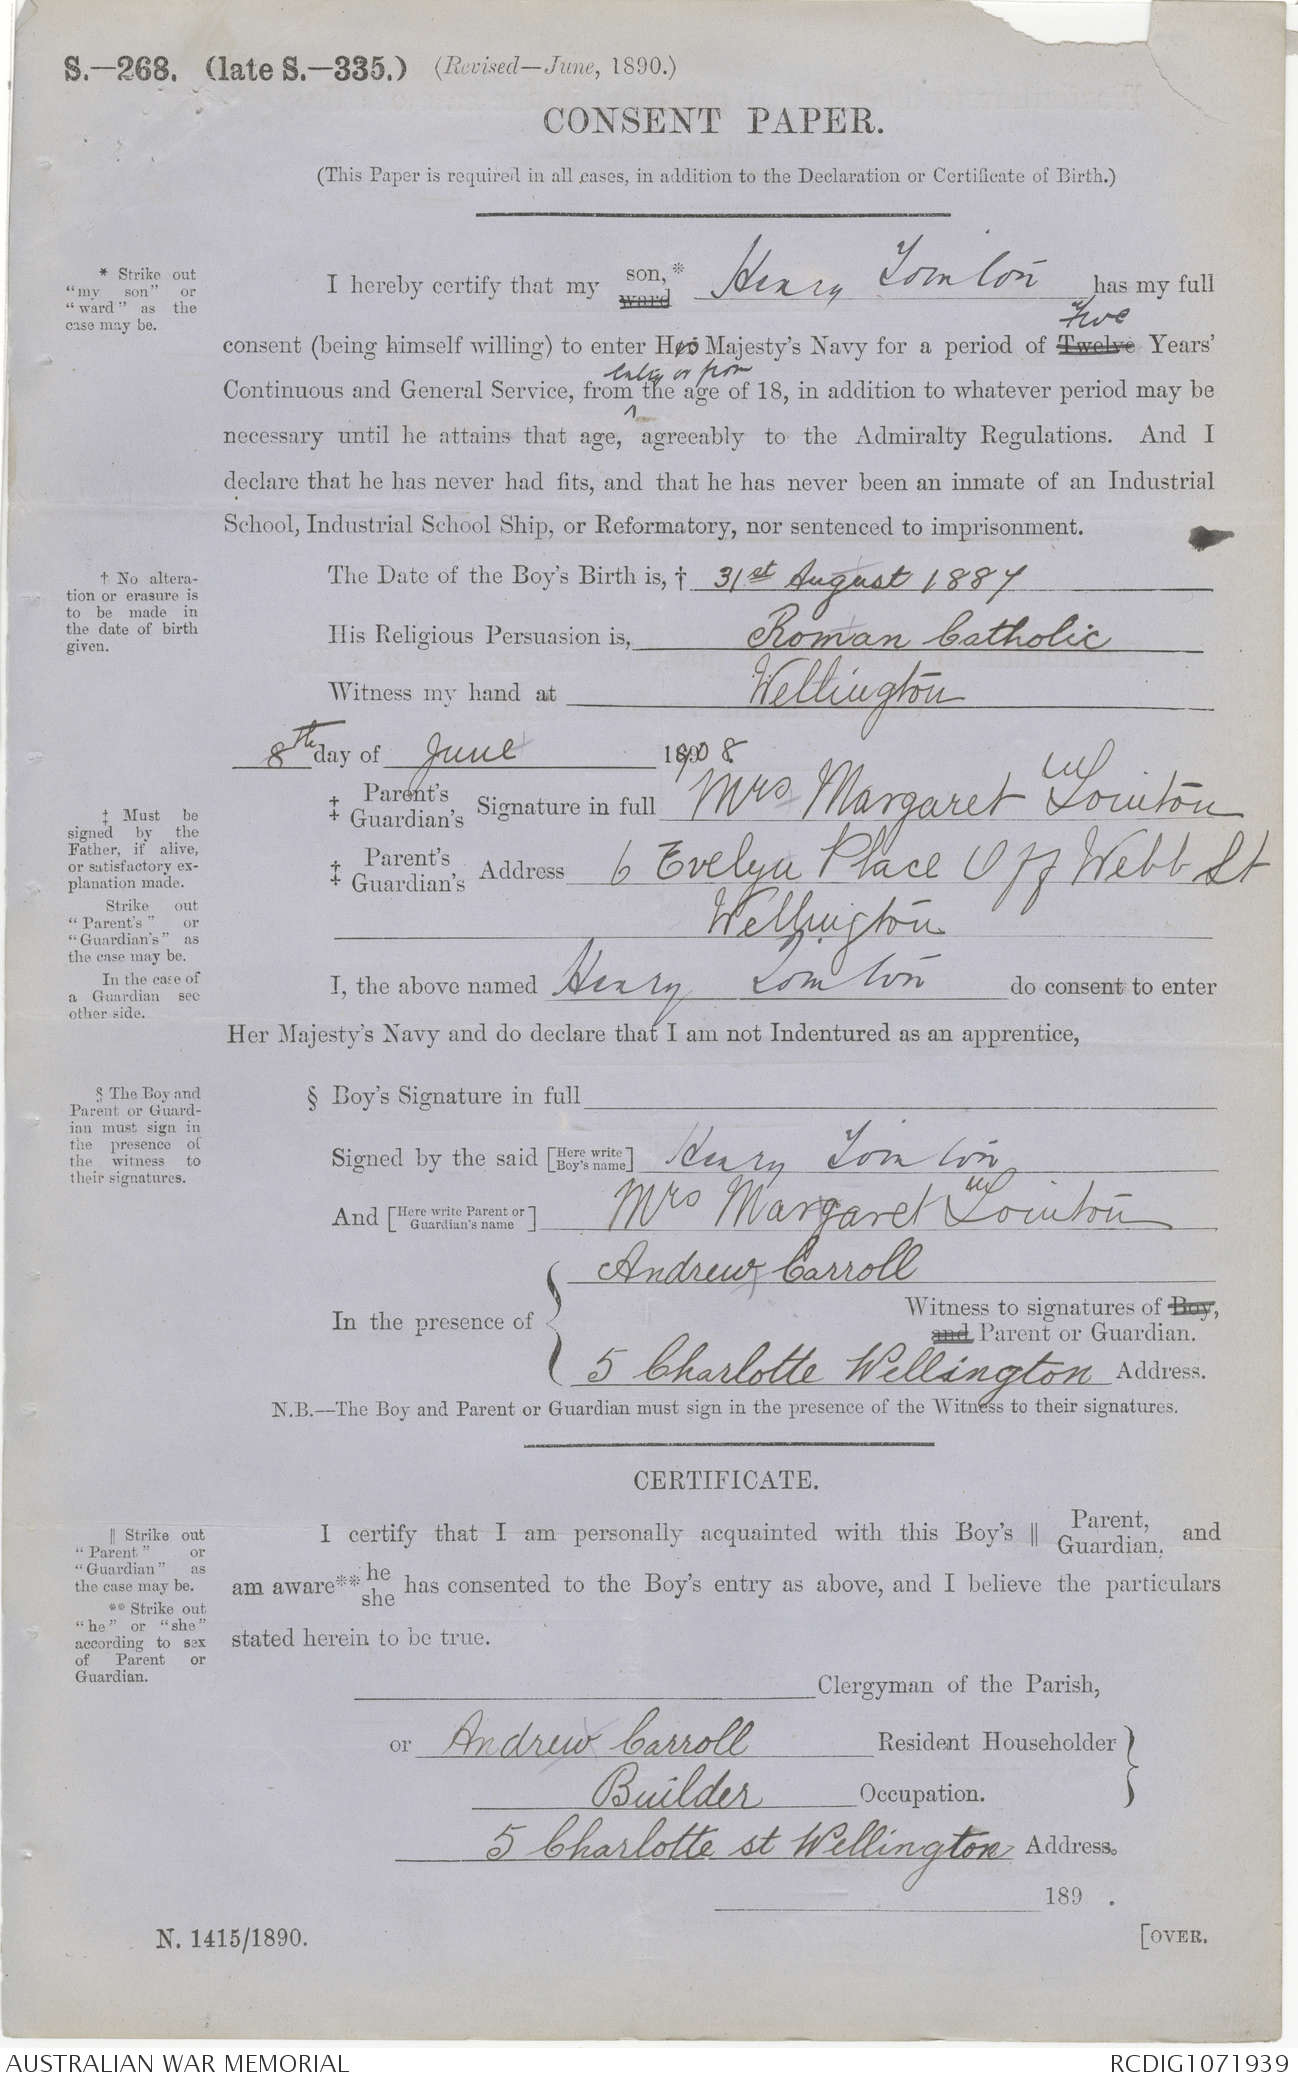 S.—268. (late S.—335.) (Revised—June, 1890.)
CONSENT PAPER.
(This Paper is required in all cases, in addition to the Declaration or Certificate of Birth.)
* Strike out
"my son" or
"ward" as the
case may be.
I hereby certify that my son,* ward Henry has my full
Five
consent (being himself willing) to enter His Majesty's Navy for a period of Twelve Years'
entry or from
Continuous and General Service, from the age of 18, in addition to whatever period may be
necessary until he attains that age, agreeably to the Admiralty Regulations. And I
declare that he has never had fits, and that he has never been an inmate of an Industrial
School, Industrial School Ship, or Reformatory, nor sentenced to imprisonment.
† No altera-
tion or erasure is
to be made in
the date of birth
given.
The Date of the Boy's Birth is, † 31st August 1887
His Religious Persuasion is, Roman Catholic
Witness my hand at Wellington
8th day of June 1908
‡ Must be
signed by the
Father, if alive,
or satisfactory ex-
planation made.
Strike out
"Parent's" or
"Guardian's" as
the case may be.
In the case of
a Guardian see
other side.
‡ Parent's Guardian's Signature in full Mrs Margaret
‡ Parent's Guardian's Address 6 Evelyn Place Off Webb St
Wellington
I, the above named Henry do consent to enter
Her Majesty's Navy and do declare that I am not Indentured as an apprentice,
§ The Boy and
Parent or Guard-
ian must sign in
the presence of
the witness to
their signatures.
§ Boy's Signature in full
Signed by the said [Here write Boy's name] Henry
And [Here write Parent or Guardian's name] Mrs Margaret
Andrew Carroll
In the presence of
Witness to signatures of Boy,
and Parent or Guardian.
5 Charlotte Wellington Address.
N.B.—The Boy and Parent or Guardian must sign in the presence of the Witness to their signatures.
CERTIFICATE.
‖ Strike out
"Parent" or
"Guardian" as
the case may be.
** Strike out
"he" or "she"
according to sex
of Parent or
Guardian.
I certify that I am personally acquainted with this Boy's ‖ Parent, Guardian, and
am aware** he she has consented to the Boy's entry as above, and I believe the particulars
stated herein to be true.
Clergyman of the Parish,
or Andrew Carroll Resident Householder
Builder Occupation.
5 Charlotte st Wellington Address.
189 .
N. 1415/1890.
[OVER.
AUSTRALIAN WAR MEMORIAL
RCDIG1071939